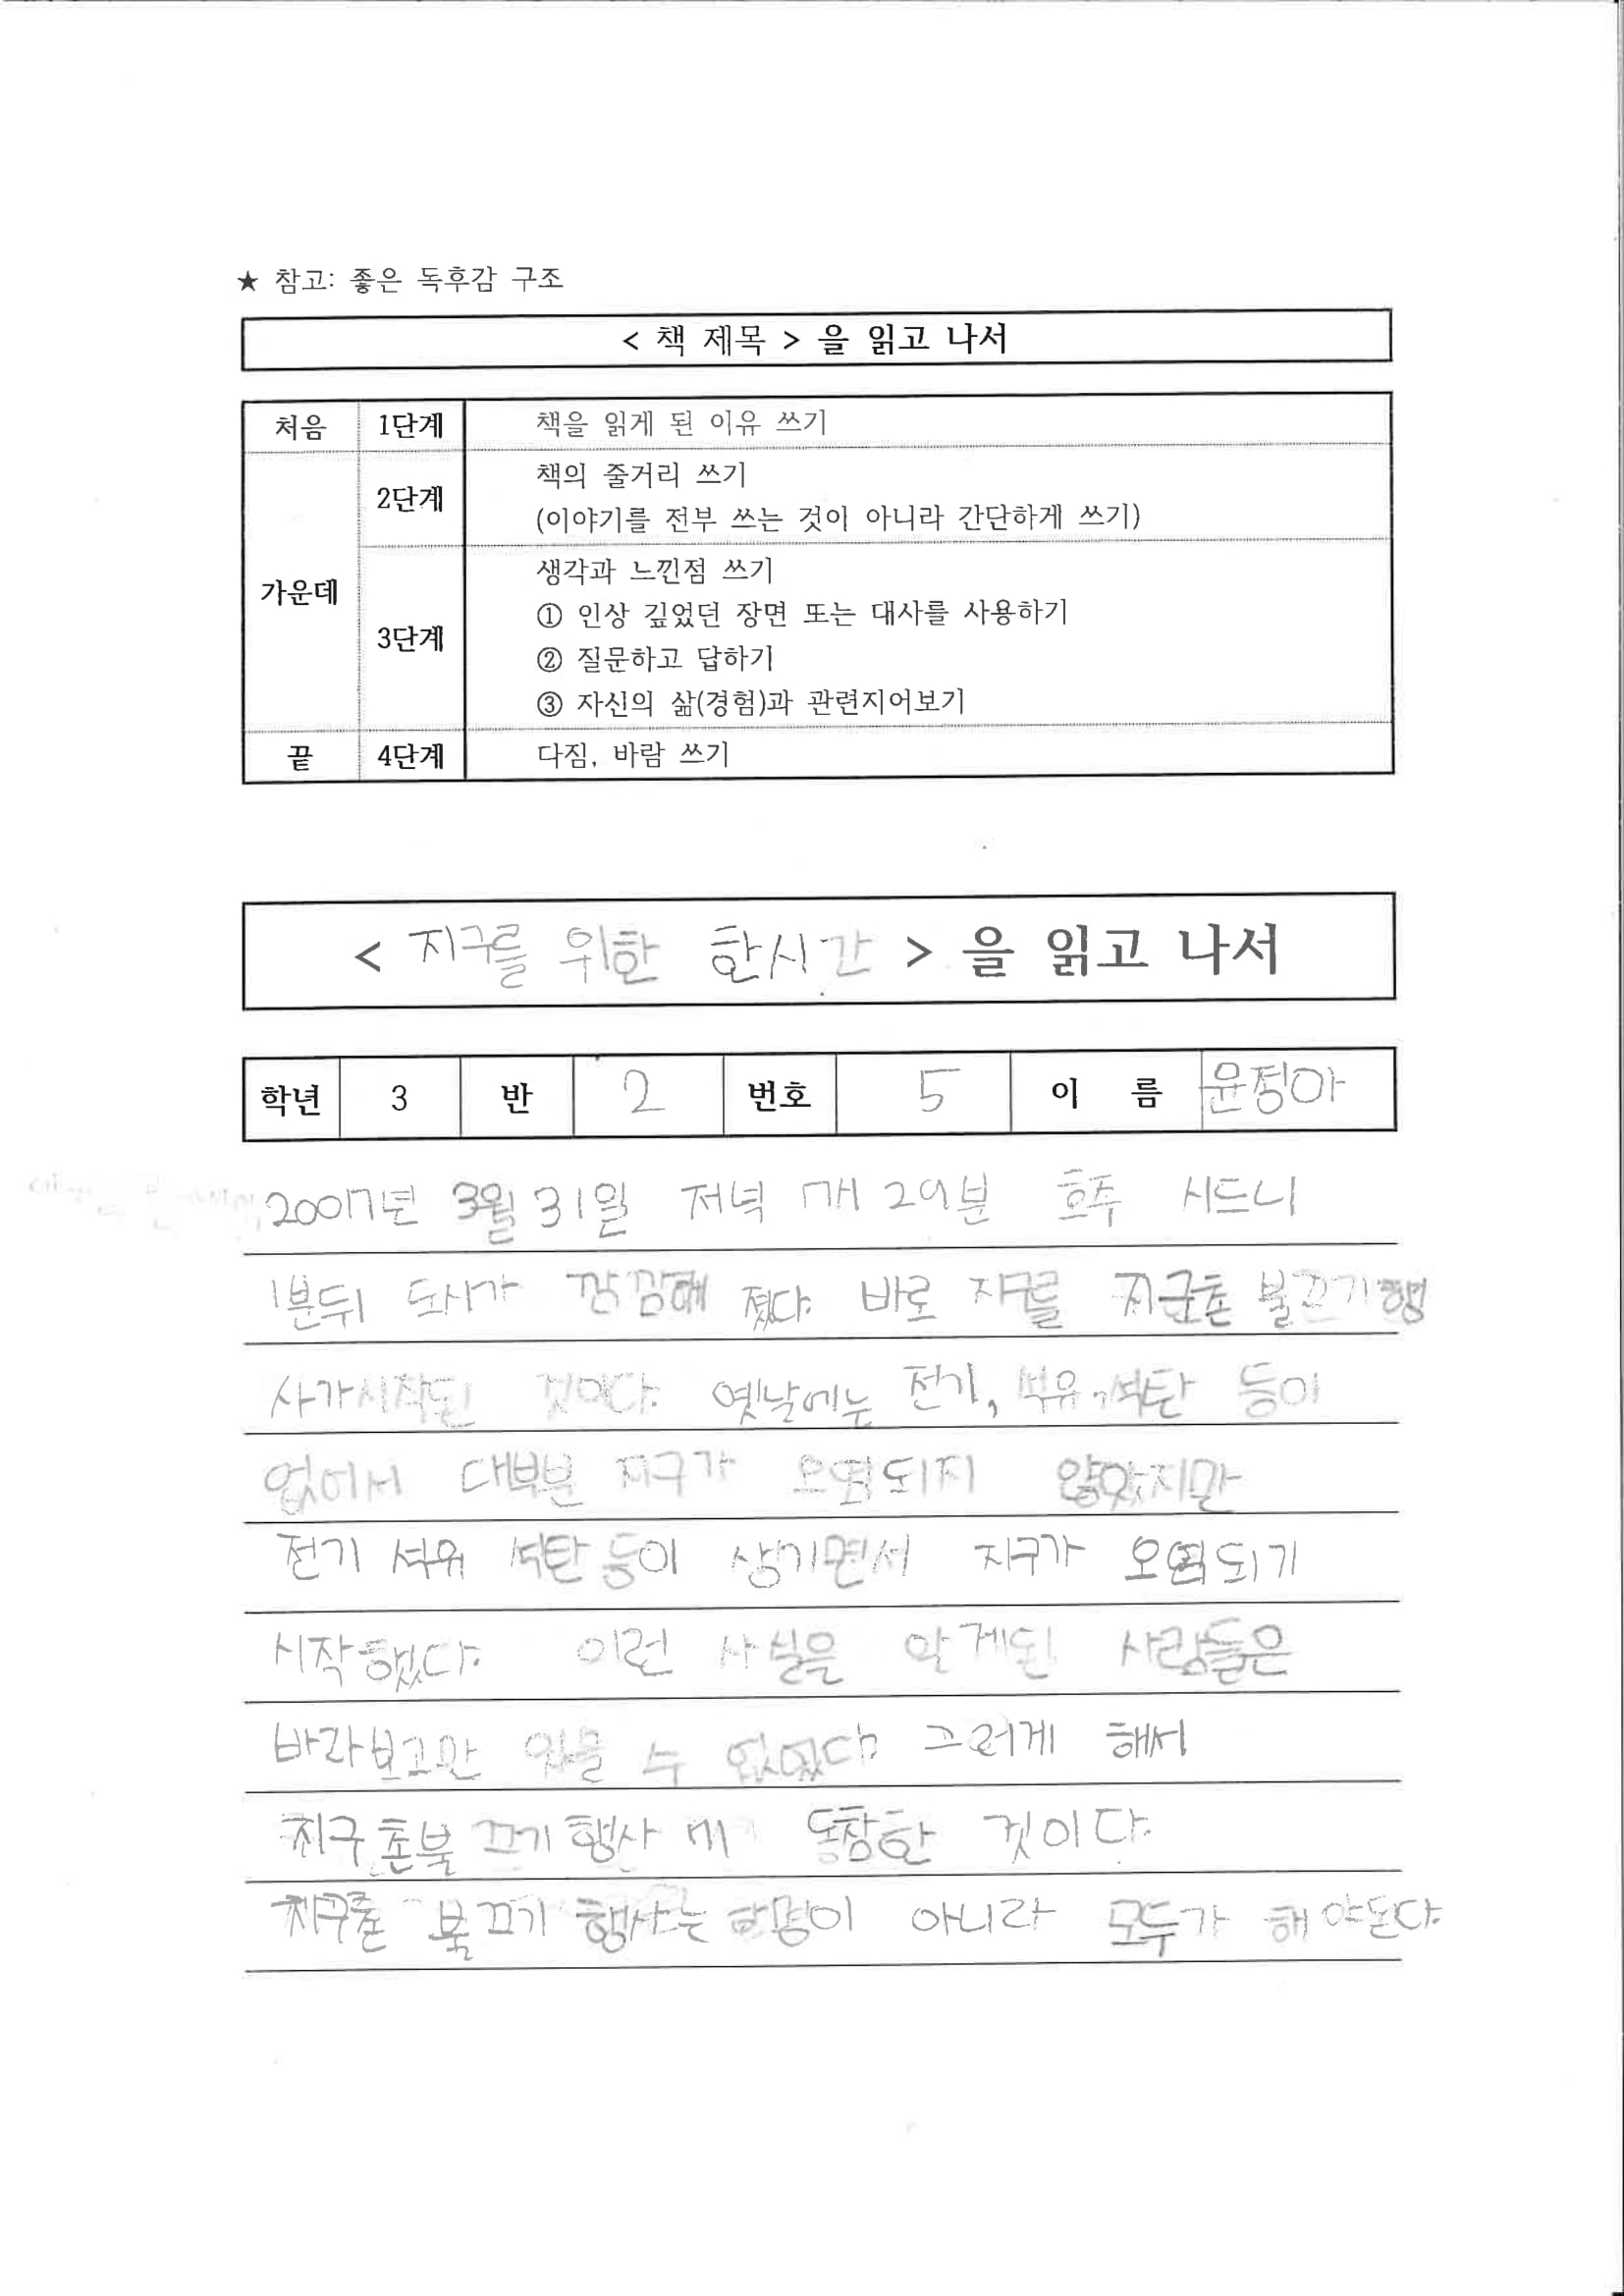 ★ 참고: 좋은 독후감 구조
< 책 제목 > 을 읽고 나서
처음 1단계 책을 읽게 된 이유 쓰기
가운데 2단계 책의 줄거리 쓰기
(이야기를 전부 쓰는 것이 아니라 간단하게 쓰기)
3단계 생각과 느낀점 쓰기
① 인상 깊었던 장면 또는 대사를 사용하기
② 질문하고 답하기
③ 자신의 삶(경험)과 관련지어보기
끝 4단계 다짐, 바람 쓰기
< 지구를 위한 한시간 > 을 읽고 나서
학년 3 반 2 번호 5 이 름 윤정아
2007년 3월 31일 저녁 7시 29분 호주 시드니
1분뒤 도시가 깜깜해 졌다. 바로 지구를 지구촌 불끄기행
사가시작된 것이다. 옛날에는 전기, 석유, 석탄 등이
없어서 대부분 지구가 오염되지 않았지만
전기 석유 석탄 등이 생기면서 지구가 오염되기
시작했다. 이런 사실을 알게된 사람들은
바라보고만 있을 수 없었다. 그러게 해서
지구촌불 끄기 행사에 동참한 것이다.
지구촌 불끄기 행사는 한명이 아니라 모두가 해야된다.